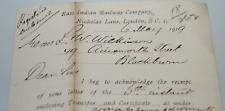 East Indian Railway Company,
Nicholas Lane, London, E.C. 4
6 May 1919
Messrs J. W. Wilkinson
19 Ainsworth Street
Blackburn
Dear Sirs
I beg to acknowledge the receipt
of your letter of the 5th instant
enclosing Transfer and Certificate